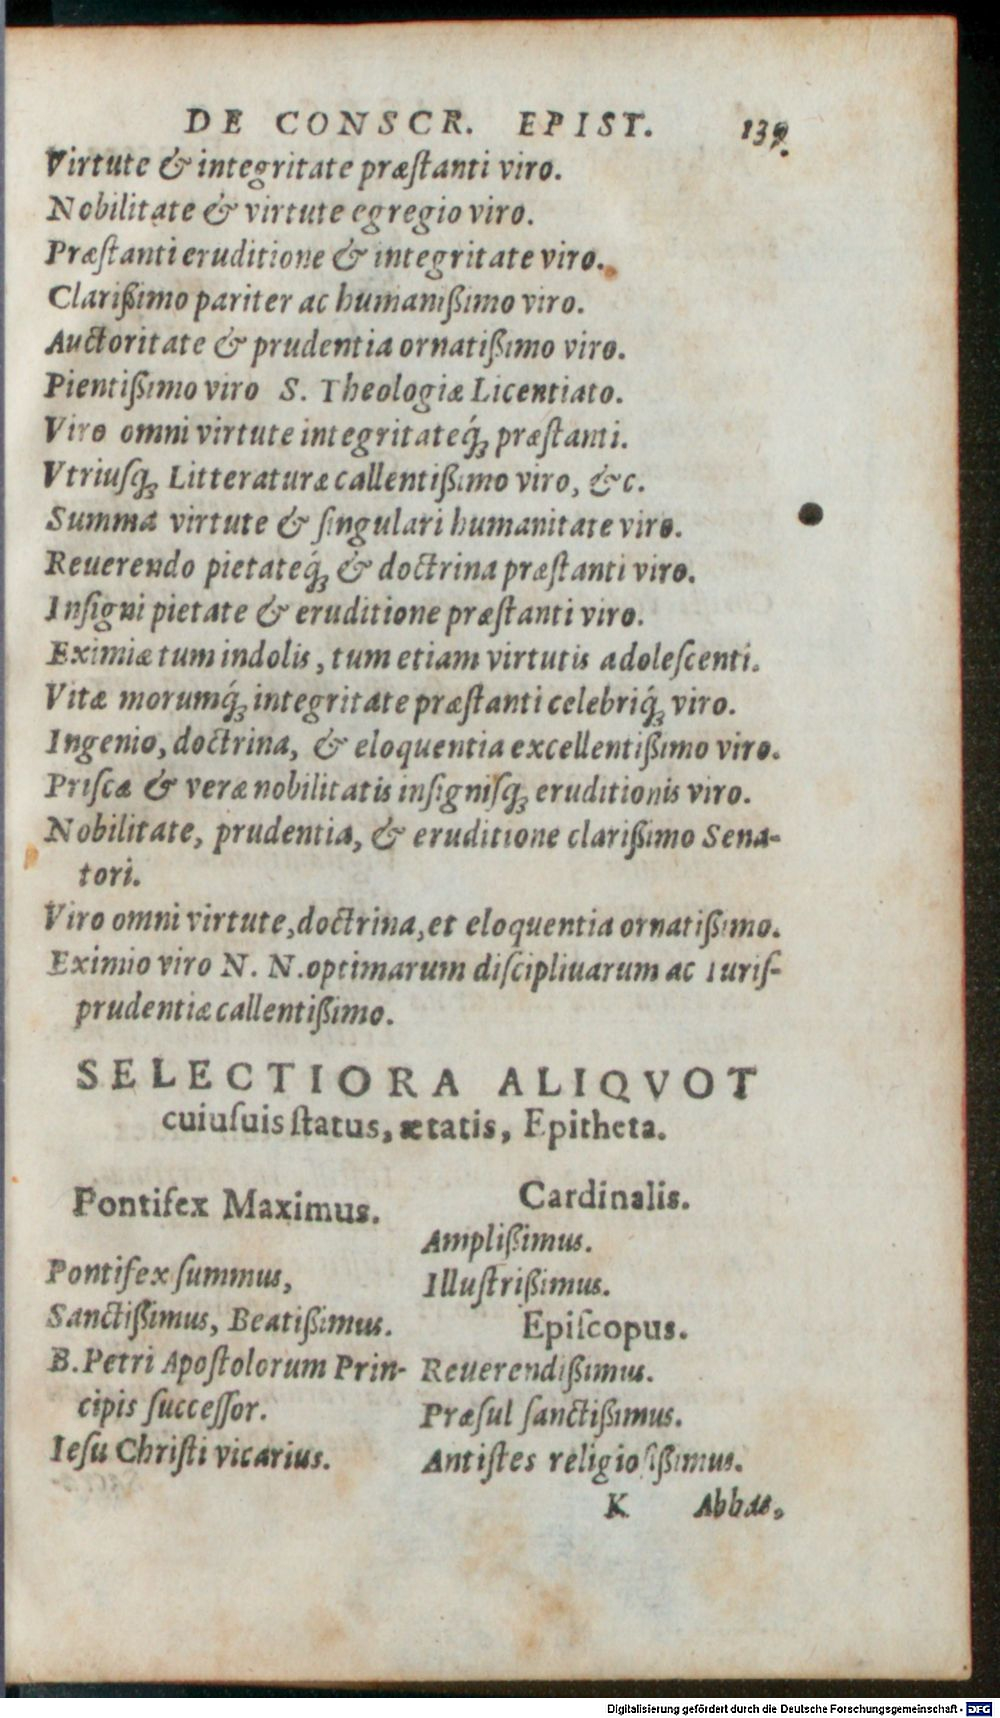 DE CONSCR. EPIST. 139.
Virtute & integritate præſtanti viro.
Nobilitate & virtute egregio viro.
Præſtanti eruditione & integritate viro.
Clarißimo pariter ac humanißimo viro.
Auctoritate & prudentia ornatißimo viro.
Pientißimo viro S. Theologiæ Licentiato.
Viro omni virtute integritateq́ꝫ præſtanti.
Vtriuſqꝫ Litteraturæ callentißimo viro, &c.
Summa virtute & ſingulari humanitate viro.
Reuerendo pietateq́ꝫ & doctrina præſtanti viro.
Inſigni pietate & eruditione præſtanti viro.
Eximiæ tum indolis, tum etiam virtutis adoleſcenti.
Vitæ morumq́ꝫ integritate præſtanti celebriq́ꝫ viro.
Ingenio, doctrina, & eloquentia excellentißimo viro.
Priſcæ & veræ nobilitatis inſigniſqꝫ eruditionis viro.
Nobilitate, prudentia, & eruditione clarißimo Sena-
tori.
Viro omni virtute, doctrina, et eloquentia ornatißimo.
Eximio viro N. N. optimarum diſcipliuarum ac Iuriſ-
prudentiæ callentißimo.
SELECTIORA ALIQVOT
cuiuſuis ſtatus, ætatis, Epitheta.
Pontifex Maximus.
Pontifex ſummus,
Sanctißimus, Beatißimus.
B. Petri Apoſtolorum Prin-
cipis ſucceſſor.
Ieſu Chriſti vicarius.
Cardinalis.
Amplißimus.
Illuſtrißimus.
Epiſcopus.
Reuerendißimus.
Præſul ſanctißimus.
Antiſtes religioſißimus.
K Abbas,
Digitalisierung gefördert durch die Deutsche Forschungsgemeinschaft - DFG